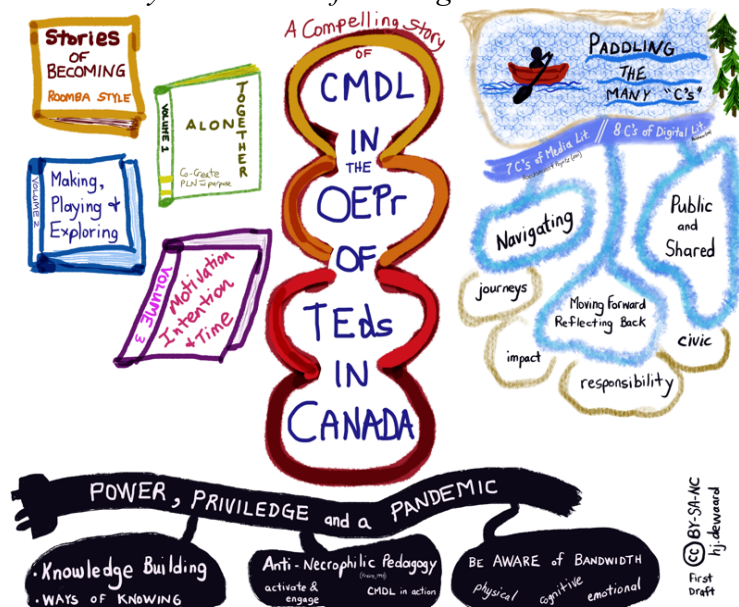 Stories
OF
BECOMING
ROOMBA STYLE
VOLUME 1
ALONE
TOGETHER
Co-Create
PLN w purpose
VOLUME 2
Making,
Playing &
Exploring
VOLUME 3
Motivation
Intention
& Time
A Compelling Story
OF
CMDL
IN
THE
OEPr
OF
TEds
IN
CANADA
PADDLING
THE
MANY "C's"
7 C's of Media Lit. // 8 C's of Digital Lit
Navigating
Public
and
Shared
journeys
Moving Forward
Reflecting Back
impact
civic
responsibility
POWER, PRIVILEDGE and a PANDEMIC
• Knowledge Building
• WAYS OF KNOWING
Anti-Necrophilic Pedagogy
activate &
engage
CMDL in action
BE AWARE of BANDWIDTH
physical cognitive emotional
cc BY-SA-NC
hj.dewaard
First
Draft